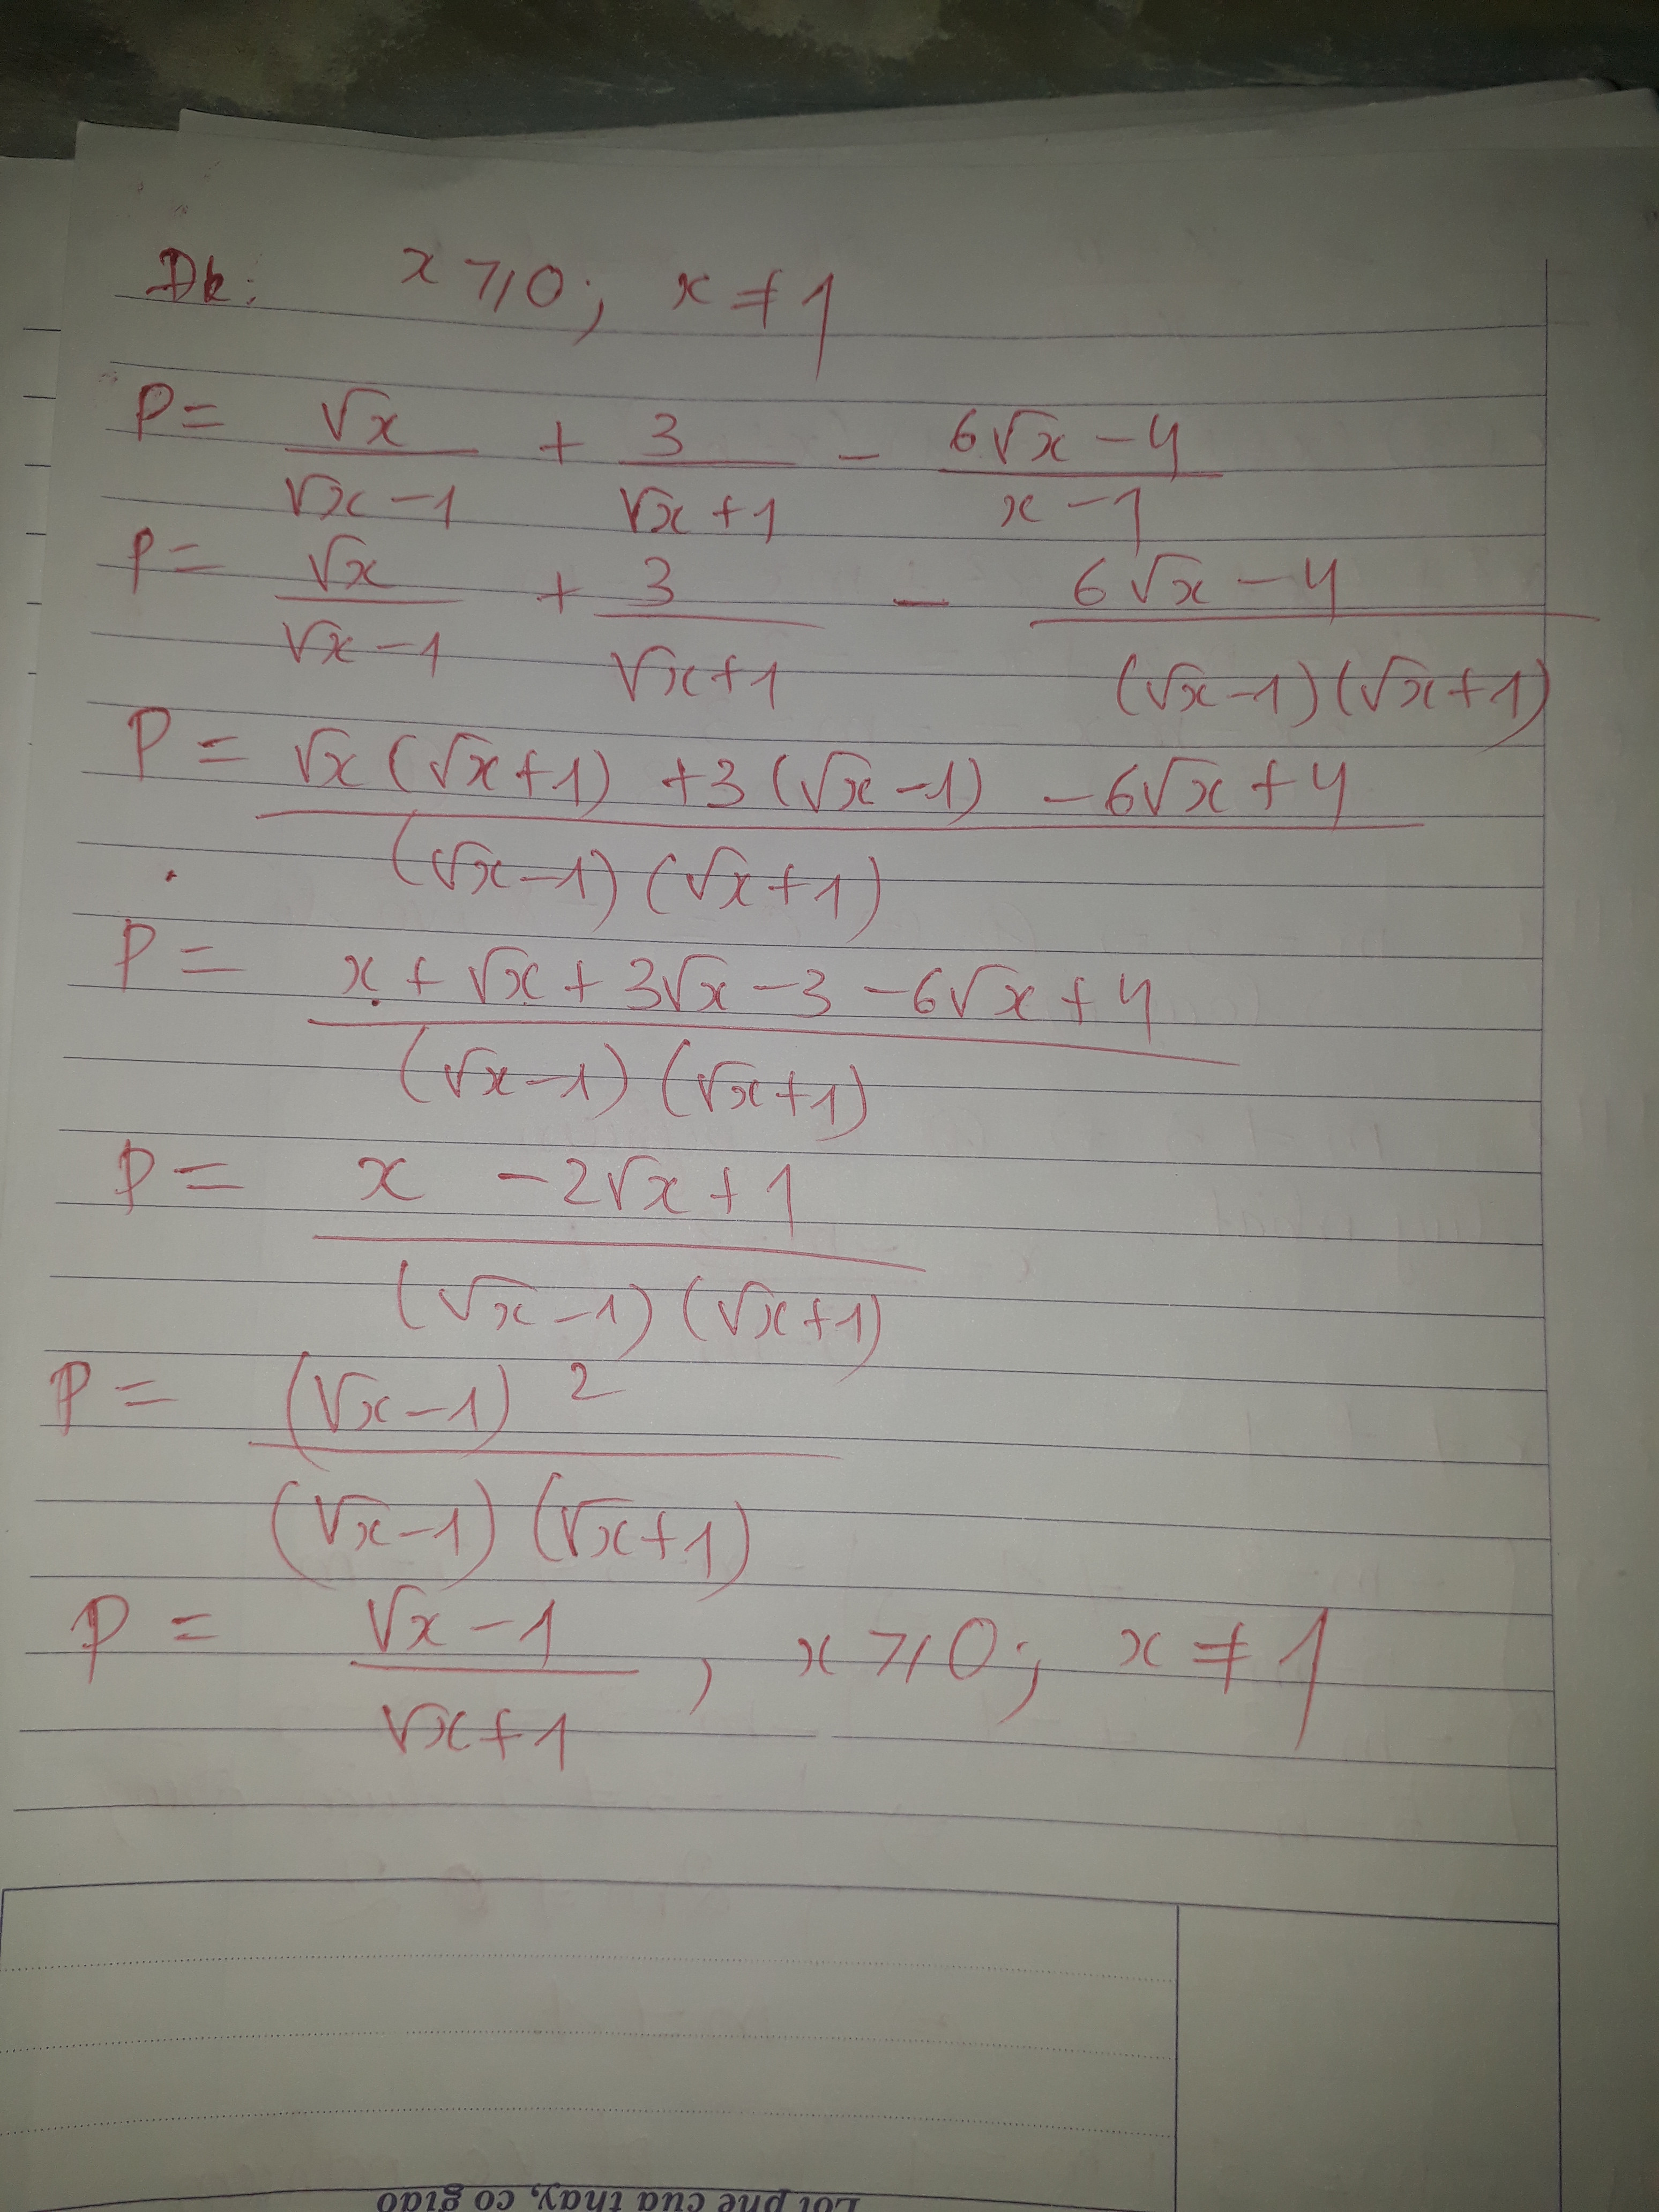 Đk: x ⩾ 0; x ≠ 1
P = √x/(√x − 1) + 3/(√x + 1) − (6√x − 4)/(x − 1)
P = √x/(√x − 1) + 3/(√x + 1) − (6√x − 4)/((√x − 1)(√x + 1))
P = (√x(√x + 1) + 3(√x − 1) − 6√x + 4)/((√x − 1)(√x + 1))
P = (x + √x + 3√x − 3 − 6√x + 4)/((√x − 1)(√x + 1))
P = (x − 2√x + 1)/((√x − 1)(√x + 1))
P = (√x − 1)²/((√x − 1)(√x + 1))
P = (√x − 1)/(√x + 1), x ⩾ 0; x ≠ 1
Lời phê của thầy, cô giáo